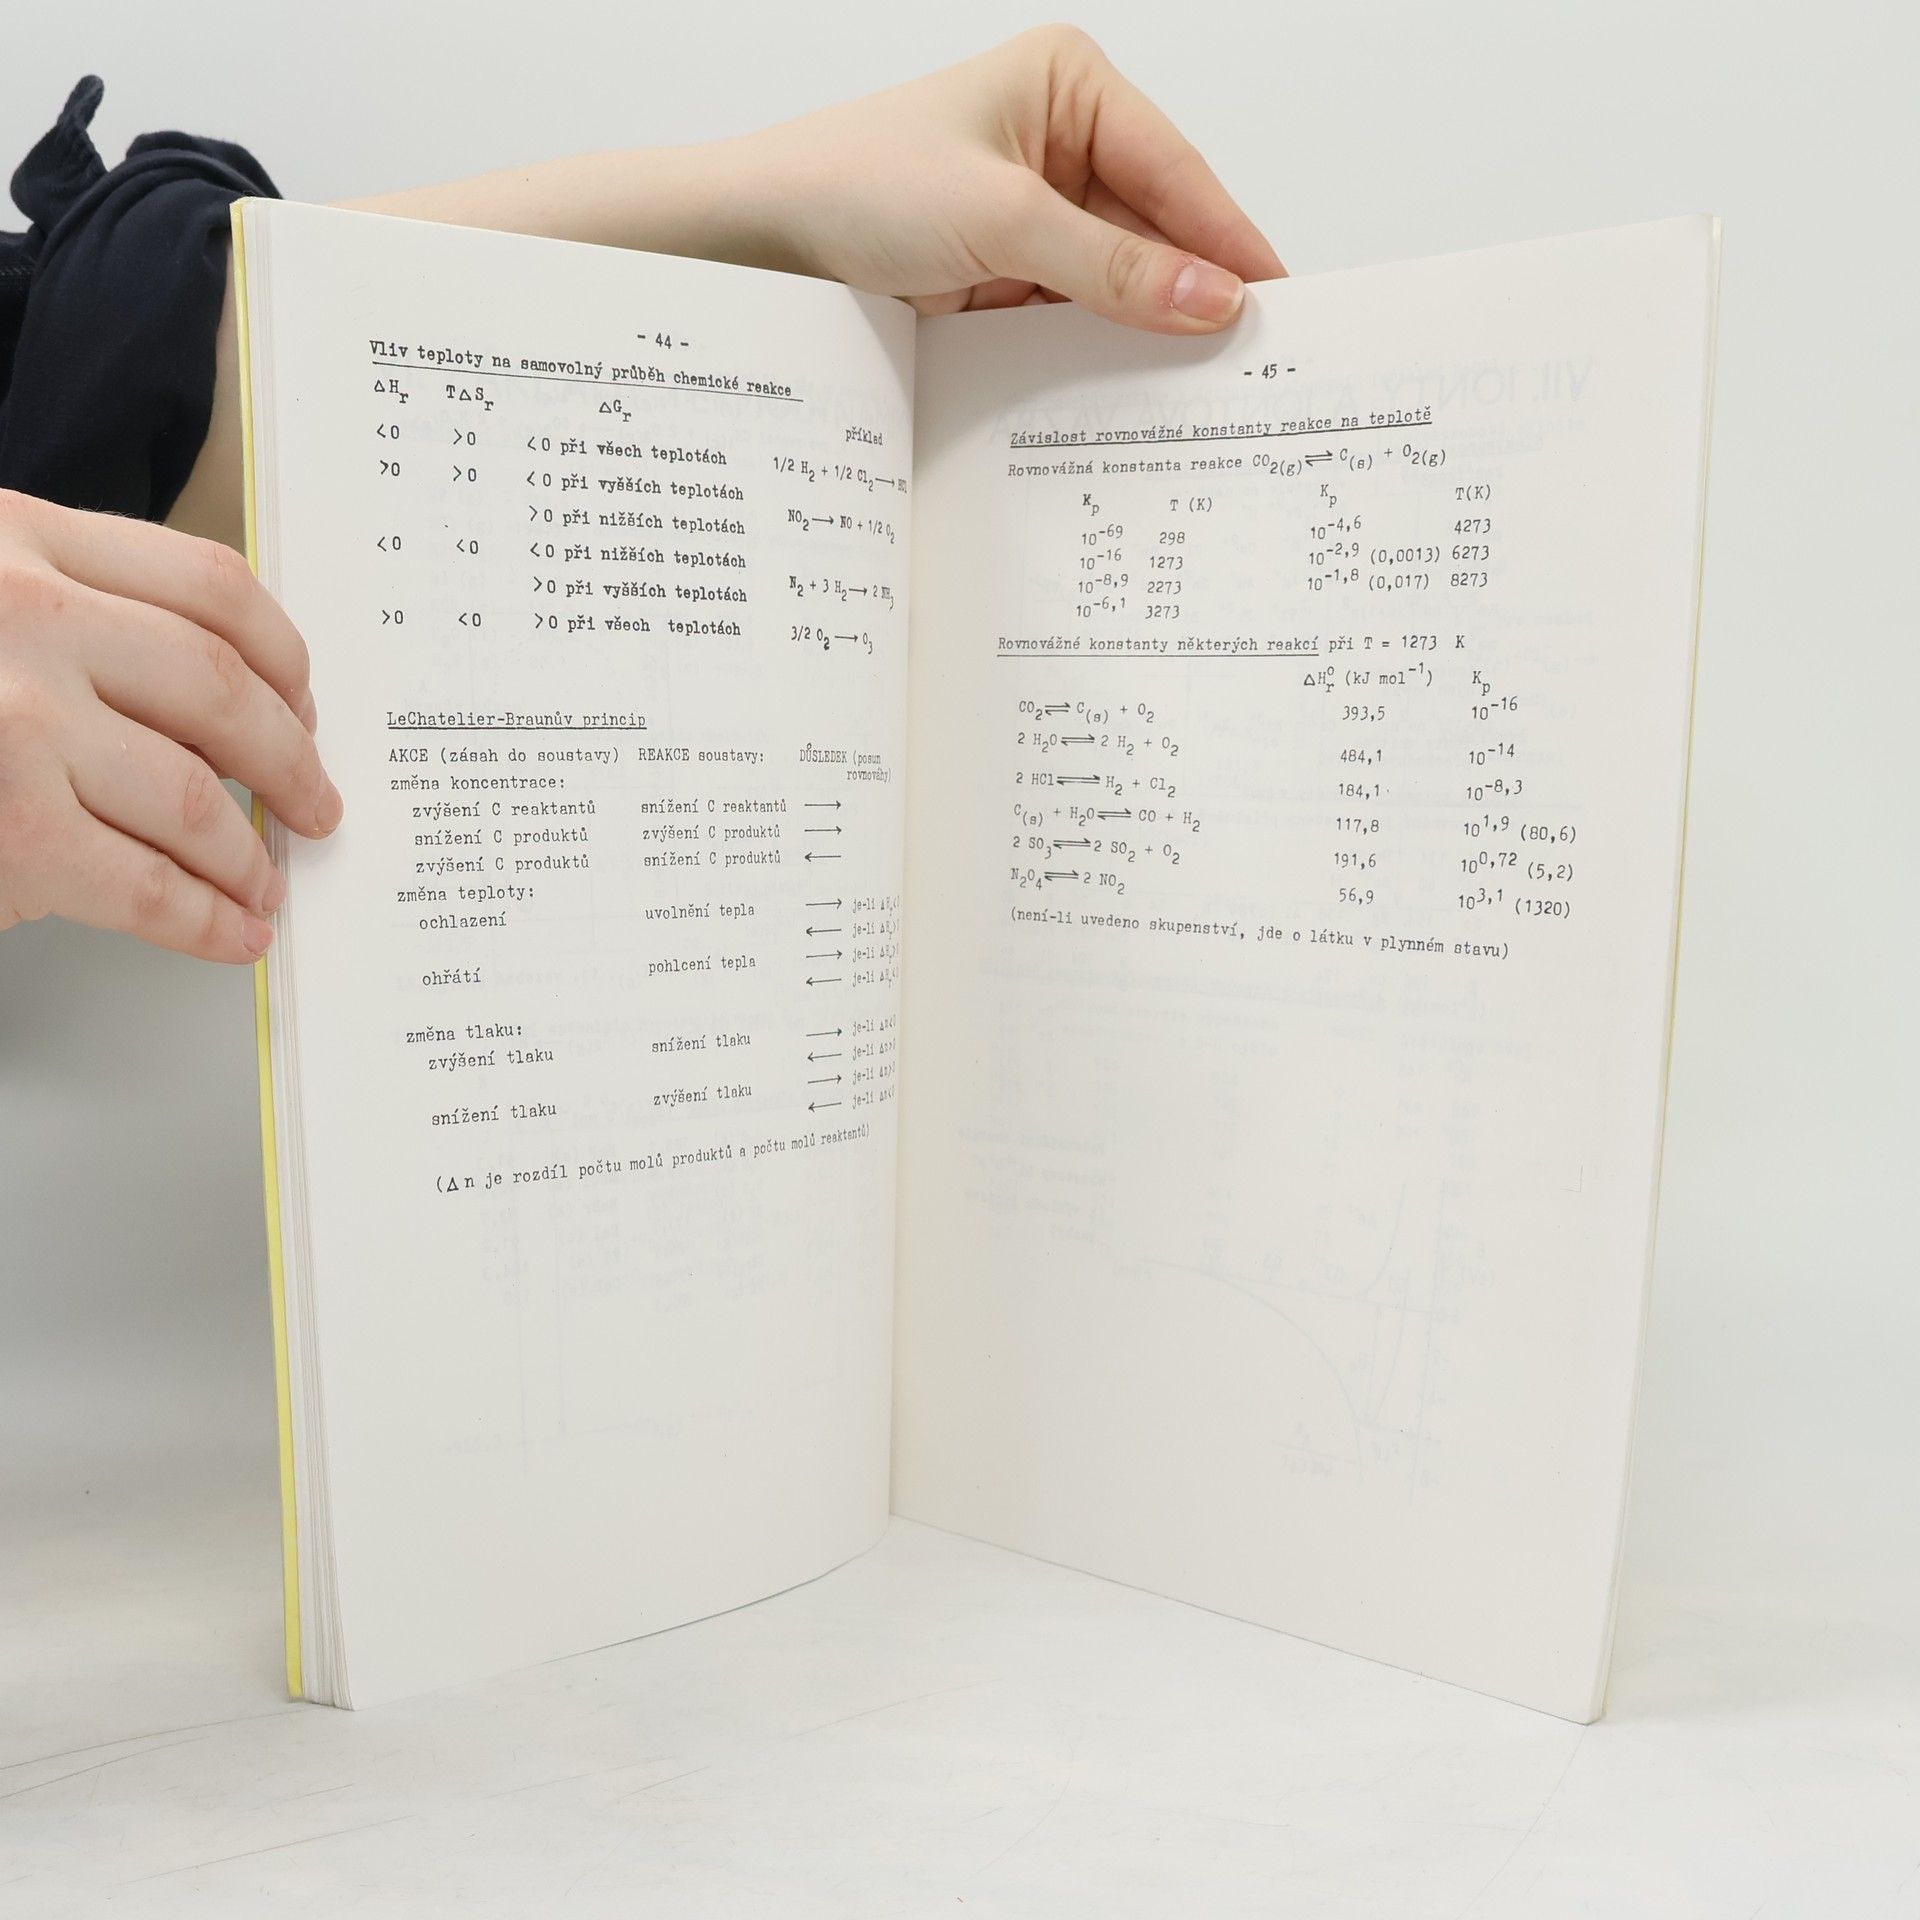 - 44 -
Vliv teploty na samovolný průběh chemické reakce
ΔH_r TΔS_r ΔG_r příklad
<0 >0 <0 při všech teplotách 1/2 H₂ + 1/2 Cl₂ ⟶ HCl
>0 >0 <0 při vyšších teplotách
>0 při nižších teplotách NO₂ ⟶ NO + 1/2 O₂
<0 <0 <0 při nižších teplotách
>0 při vyšších teplotách N₂ + 3 H₂ ⟶ 2 NH₃
>0 <0 >0 při všech teplotách 3/2 O₂ ⟶ O₃
LeChatelier-Braunův princip
AKCE (zásah do soustavy) REAKCE soustavy: DŮSLEDEK (posun
rovnováhy)
změna koncentrace:
zvýšení C reaktantů snížení C reaktantů ⟶
snížení C produktů zvýšení C produktů ⟶
zvýšení C produktů snížení C produktů ⟵
změna teploty:
ochlazení uvolnění tepla ⟶ je-li ΔH_r<0
⟵ je-li ΔH_r>0
ohřátí pohlcení tepla ⟶ je-li ΔH_r>0
⟵ je-li ΔH_r<0
změna tlaku:
zvýšení tlaku snížení tlaku ⟶ je-li Δn<0
⟵ je-li Δn>0
snížení tlaku zvýšení tlaku ⟶ je-li Δn>0
⟵ je-li Δn<0
(Δn je rozdíl počtu molů produktů a počtu molů reaktantů)
- 45 -
Závislost rovnovážné konstanty reakce na teplotě
Rovnovážná konstanta reakce CO₂(g) ⇌ C(s) + O₂(g)
K_p T (K) K_p T(K)
10⁻⁶⁹ 298 10^-4,6 4273
10⁻¹⁶ 1273 10^-2,9 (0,0013) 6273
10^-8,9 2273 10^-1,8 (0,017) 8273
10^-6,1 3273
Rovnovážné konstanty některých reakcí při T = 1273 K
ΔH_r^o (kJ mol⁻¹) K_p
CO₂ ⇌ C(s) + O₂ 393,5 10⁻¹⁶
2 H₂O ⇌ 2 H₂ + O₂ 484,1 10⁻¹⁴
2 HCl ⇌ H₂ + Cl₂ 184,1 10^-8,3
C(s) + H₂O ⇌ CO + H₂ 117,8 10^1,9 (80,6)
2 SO₃ ⇌ 2 SO₂ + O₂ 191,6 10^0,72 (5,2)
N₂O₄ ⇌ 2 NO₂ 56,9 10^3,1 (1320)
(není-li uvedeno skupenství, jde o látku v plynném stavu)